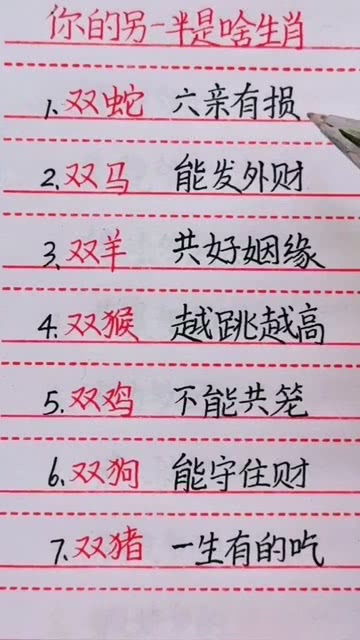 你的另一半是啥生肖
1、双蛇 六亲有损
2、双马 能发外财
3、双羊 共好姻缘
4、双猴 越跳越高
5、双鸡 不能共笼
6、双狗 能守住财
7、双猪 一生有的吃